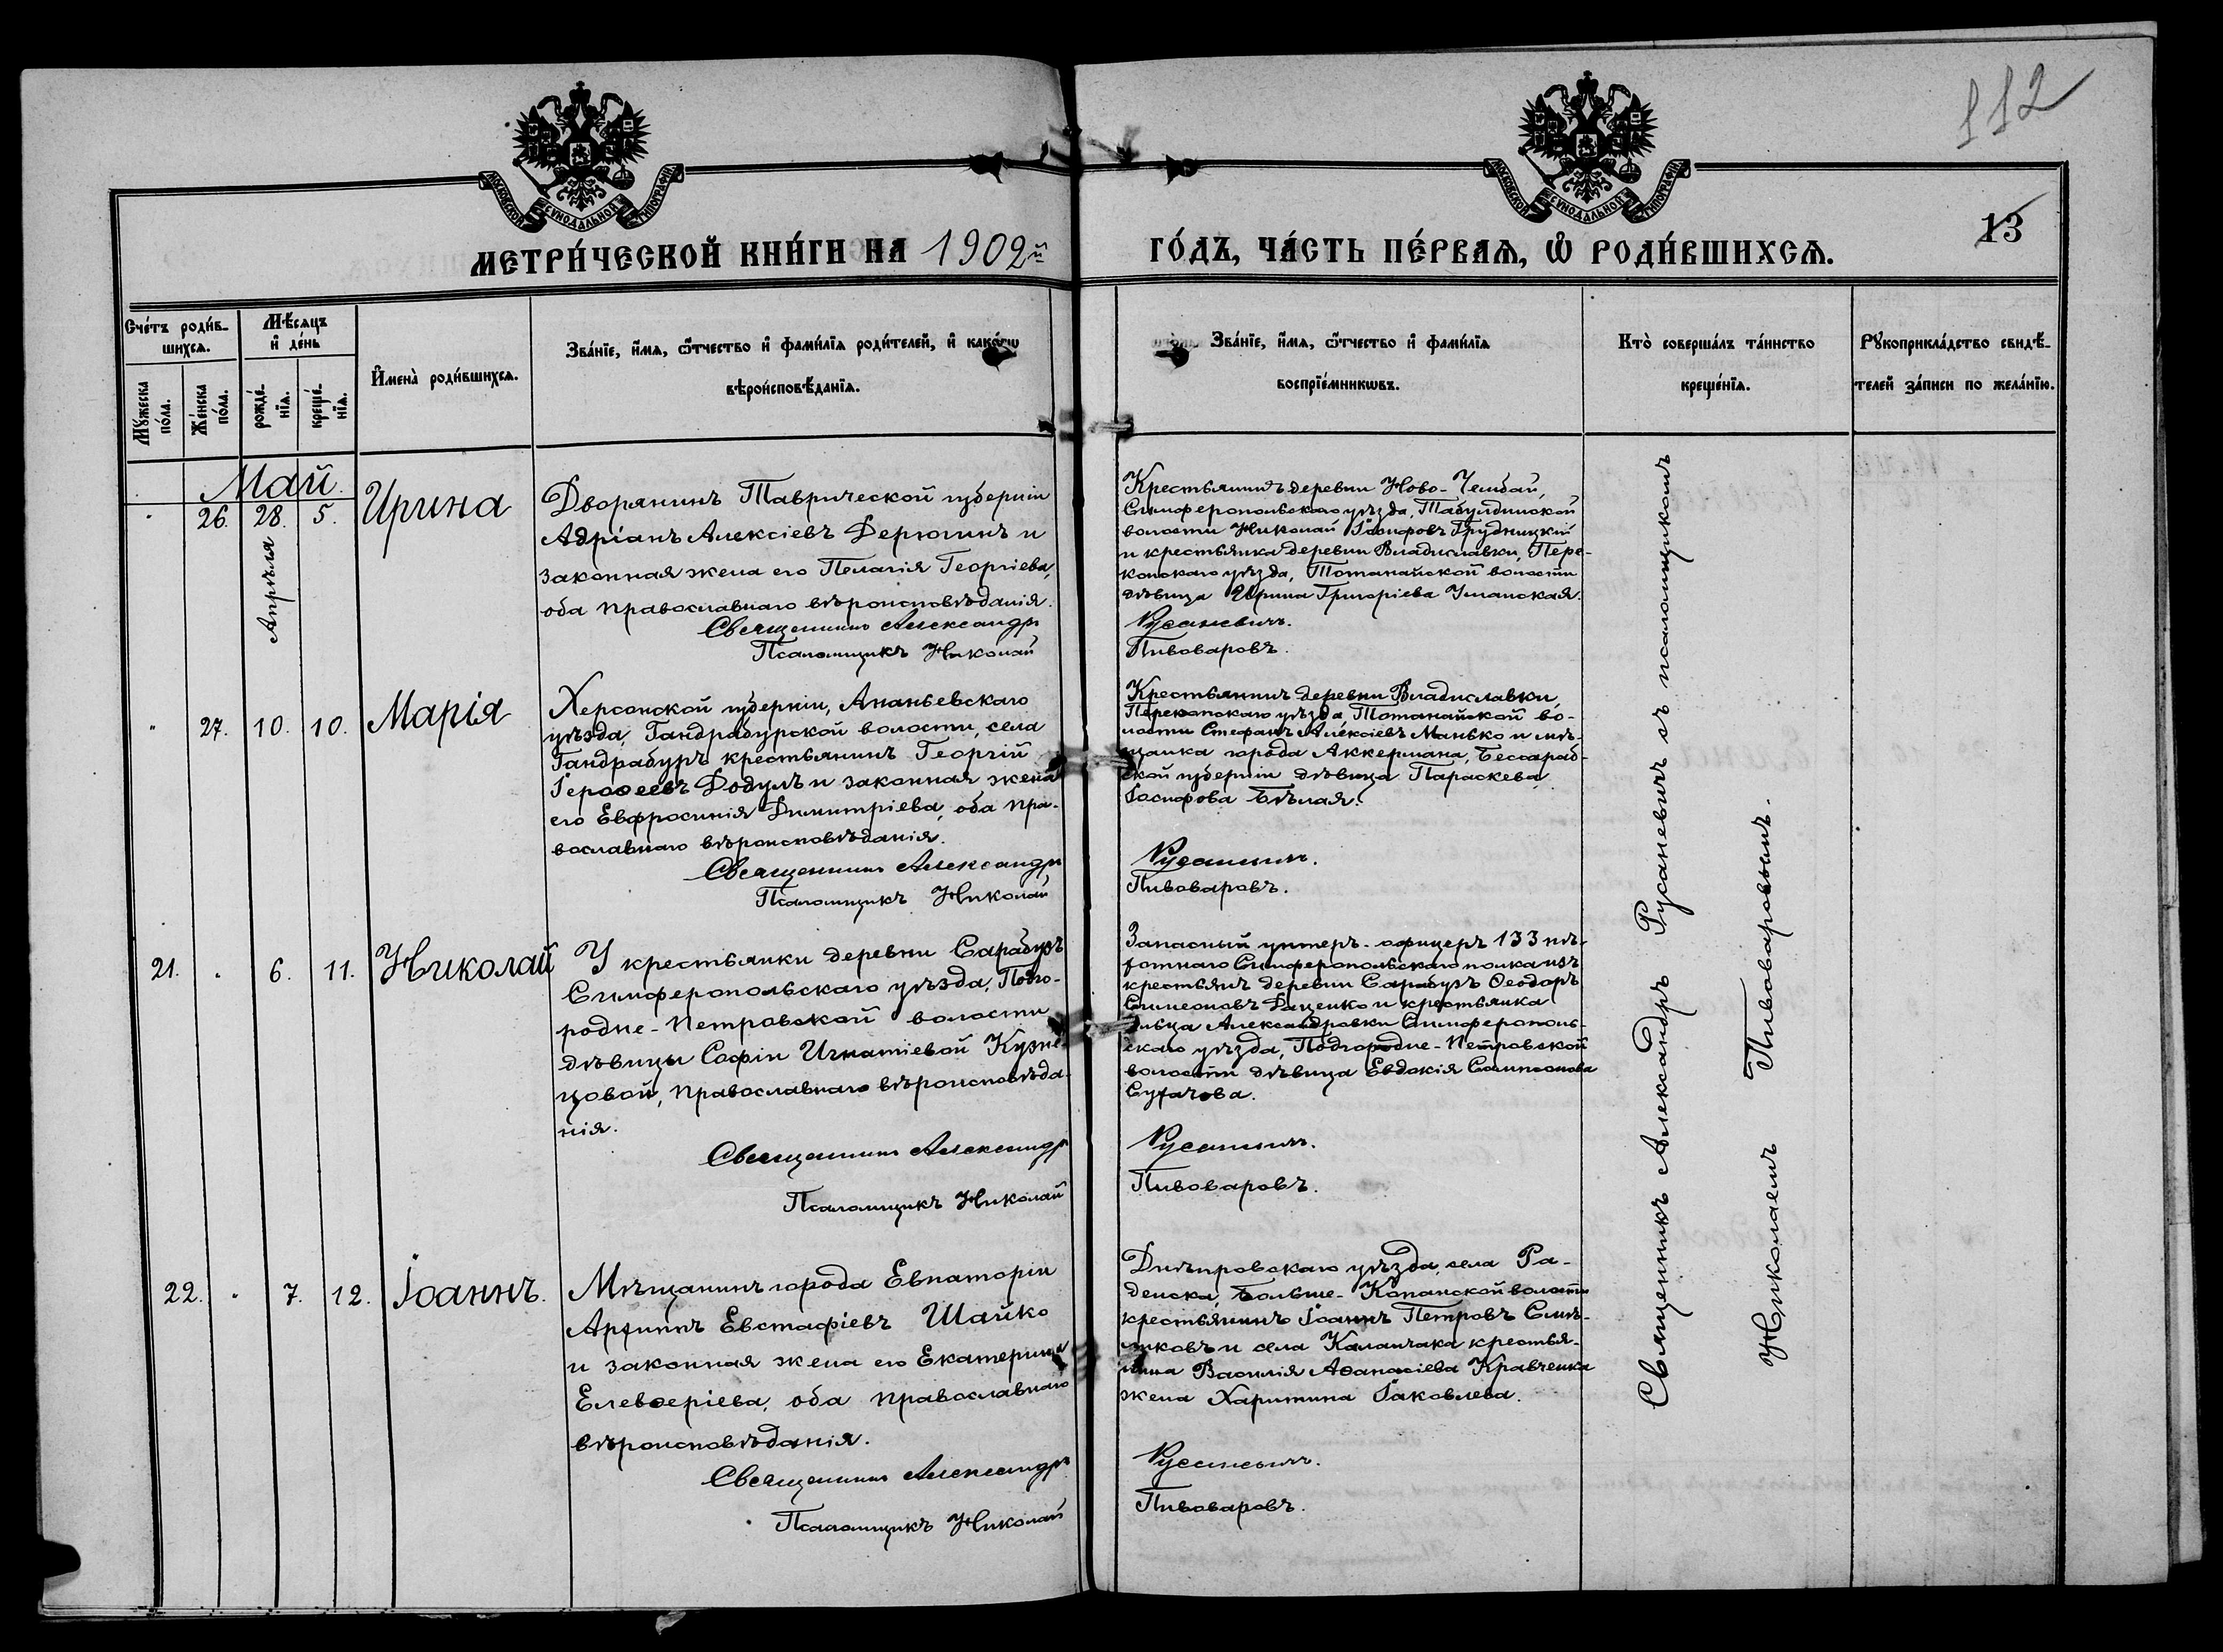 112
13
МОСКОВСКОЙ СѴНОДАЛЬНОЙ ТИПОГРАФІИ
МОСКОВСКОЙ СѴНОДАЛЬНОЙ ТИПОГРАФІИ
МЕТРИ́ЧЕСКОЙ КНИ́ГИ НА 1902й
ГО́ДЪ, ЧА́СТЬ ПЕ́РВАѦ, Ѡ҆ РОДИ́ВШИХСѦ.
Сче́тъ роди́в-
шихсѧ.
Мꙋ́жеска
по́ла.
Же́нска
по́ла.
Мѣ́сѧцъ
и҆ де́нь
рожде́-
нїѧ.
креще́-
нїѧ.
И҆мена̀ роди́вшихсѧ.
Зва́нїе, и҆́мѧ, ѻ҆́тчество и҆ фами́лїѧ роди́телей, и҆ како́гѡ
вѣроисповѣ́данїѧ.
Зва́нїе, и҆́мѧ, ѻ҆́тчество и҆ фами́лїѧ
воспрїе́мникѡвъ.
Кто̀ соверша́лъ та́инство
креще́нїѧ.
Рꙋкоприкла́дство свидѣ́-
телей за́писи по жела́нїю.
Май.
" 26. 28. 5. Ирина
Апрѣля
Дворянинъ Таврической губерніи
Адріанъ Алексіевъ Дерюгинъ и
законная жена его Пелагія Георгіева,
оба православнаго вѣроисповѣданія.
Священникъ Александръ
Псаломщикъ Николай
Крестьянинъ деревни Ново-Чембай,
Симферопольскаго уѣзда, Табулдинской
волости Николай Іосифовъ Грудницкій
и крестьянка деревни Владиславки, Пере-
копскаго уѣзда, Тотанайской волости
дѣвица Ирина Григоріева Уманская.
Русаневичъ.
Пивоваровъ.
" 27. 10. 10. Марія
Херсонской губерніи, Ананьевскаго
уѣзда, Гандрабурской волости, села
Гандрабуръ крестьянинъ Георгій
Іероѳеевъ Додулъ и законная жена
его Евфросинія Димитріева, оба пра-
вославнаго вѣроисповѣданія.
Священникъ Александръ
Псаломщикъ Николай
Крестьянинъ деревни Владиславки,
Перекопскаго уѣзда, Тотанайской во-
лости Стефанъ Алексіевъ Манько и мѣ-
щанка города Аккермана, Бессараб-
ской губерніи дѣвица Параскева
Іосифова Бѣлая.
Русаневичъ.
Пивоваровъ.
21. " 6. 11. Николай
У крестьянки деревни Сарабузъ
Симферопольскаго уѣзда, Подго-
родне-Петровской волости
дѣвицы Софіи Игнатіевой Кузне-
цовой, православнаго вѣроисповѣда-
нія.
Священникъ Александръ
Псаломщикъ Николай
Запасный унтеръ-офицеръ 133 пѣ-
хотнаго Симферопольскаго полка изъ
крестьянъ деревни Сарабузъ Ѳеодоръ
Симеоновъ Даценко и крестьянка
сельца Александровки Симферополь-
скаго уѣзда, Подгородне-Петровской
волости дѣвица Евдокія Сампсонова
Сугачова.
Русаневичъ.
Пивоваровъ.
22. " 7. 12. Іоаннъ.
Мѣщанинъ города Евпаторіи
Архиппъ Евстафіевъ Шайко
и законная жена его Екатерина
Елевѳеріева, оба православнаго
вѣроисповѣданія.
Священникъ Александръ
Псаломщикъ Николай
Днѣпровскаго уѣзда, села Ра-
денска, Больше-Копанской волости
крестьянинъ Іоаннъ Петровъ
и села Каланчака крестья-
нина Василія Аѳанасіева Кравченка
жена Харитина Іаковлева.
Русаневичъ.
Пивоваровъ.
Священникъ Александръ Русаневичъ съ псаломщикомъ
Николаемъ Пивоваровымъ.